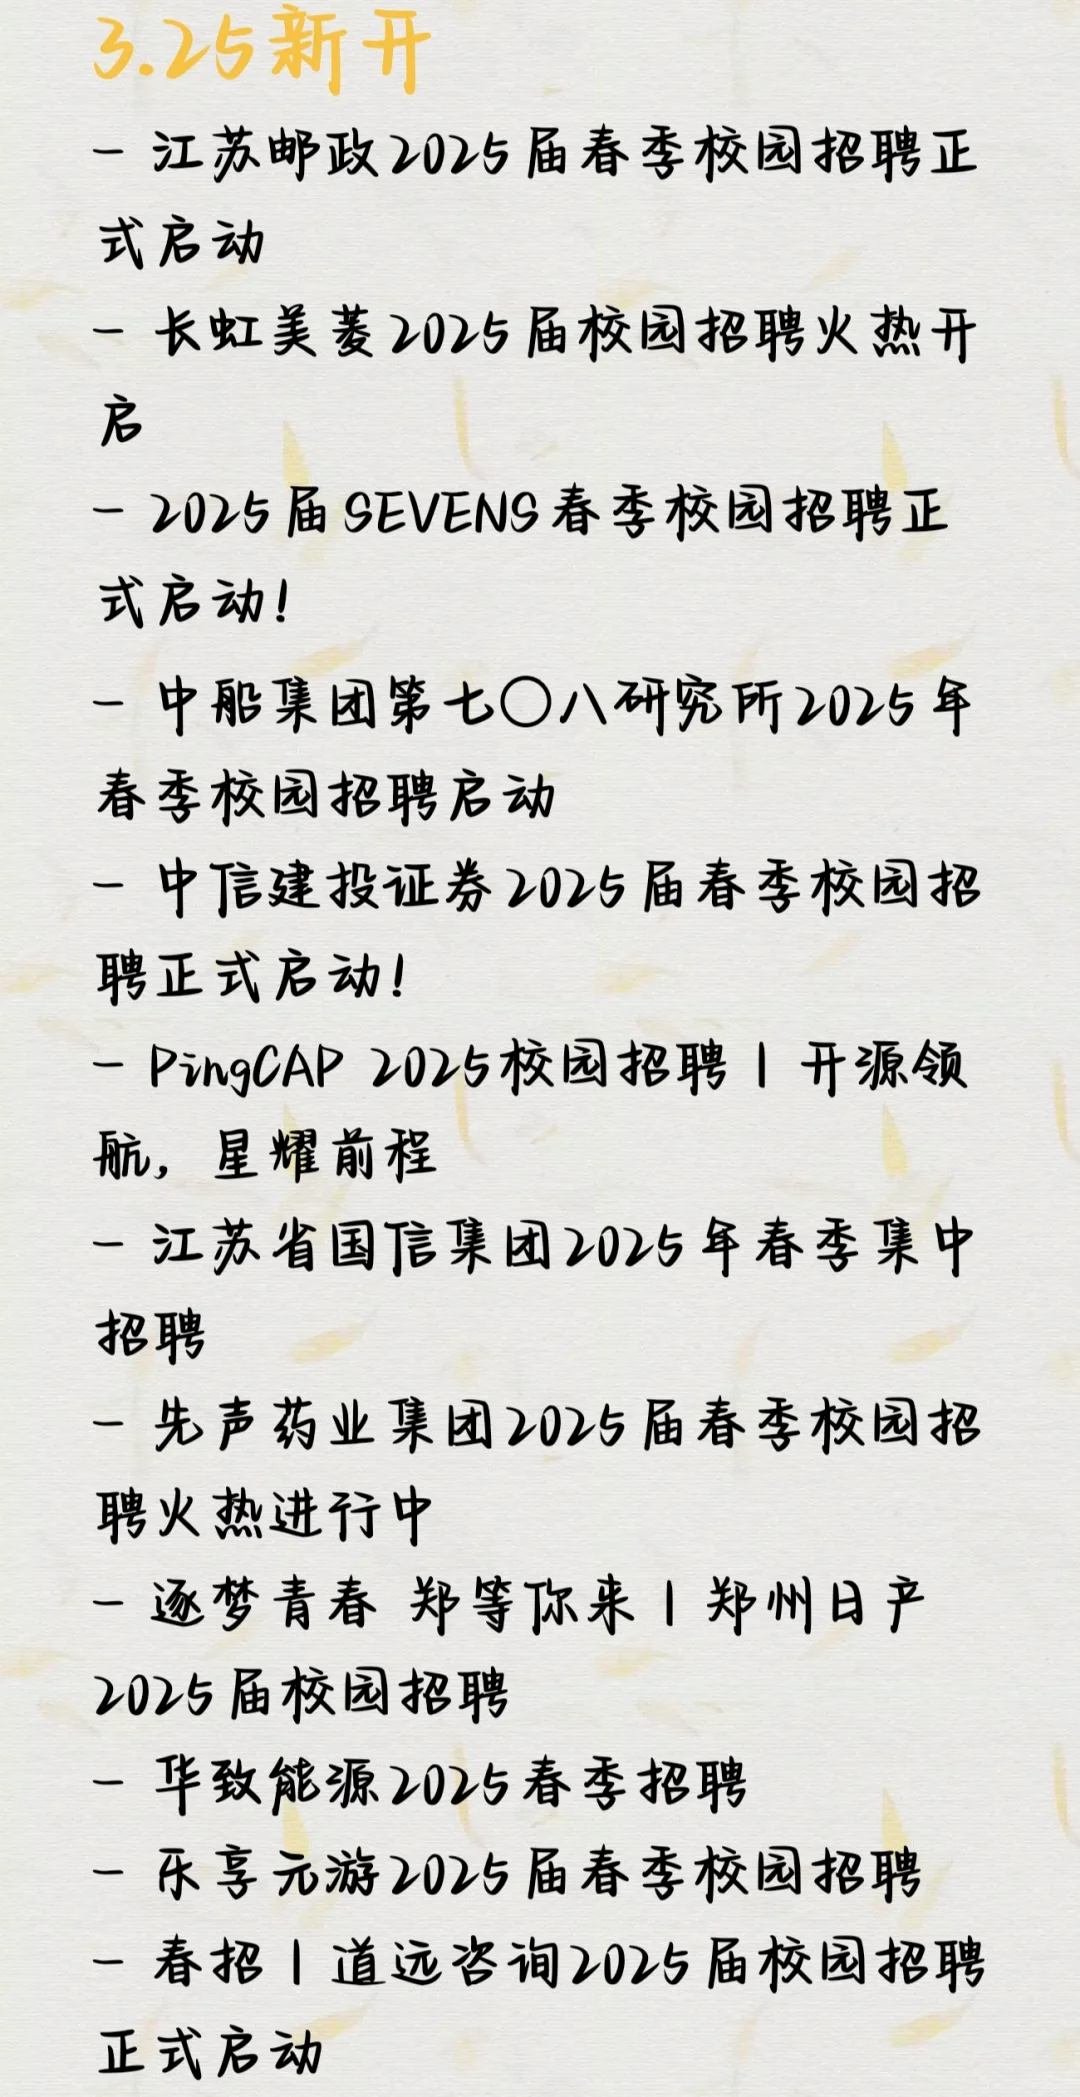 3.25新开
- 江苏邮政2025届春季校园招聘正
式启动
- 长虹美菱2025届校园招聘火热开
启
- 2025届SEVENS春季校园招聘正
式启动!
- 中船集团第七〇八研究所2025年
春季校园招聘启动
- 中信建投证券2025届春季校园招
聘正式启动!
- PingCAP 2025校园招聘 | 开源领
航, 星耀前程
- 江苏省国信集团2025年春季集中
招聘
- 先声药业集团2025届春季校园招
聘火热进行中
- 逐梦青春 郑等你来 | 郑州日产
2025届校园招聘
- 华致能源2025春季招聘
- 乐享元游2025届春季校园招聘
- 春招 | 道远咨询2025届校园招聘
正式启动